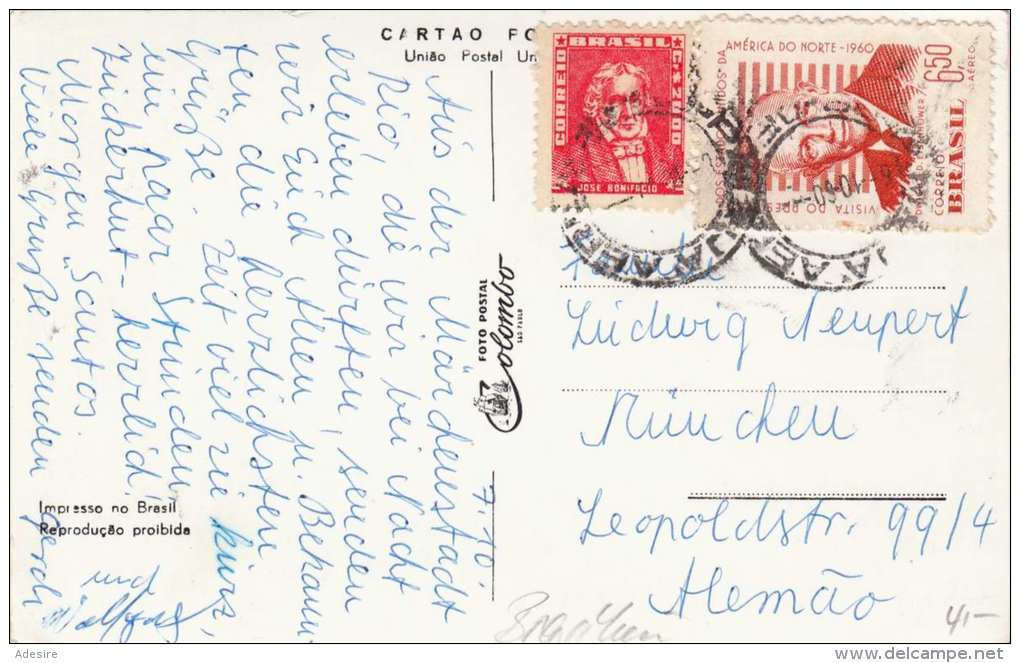 CARTAO FO
União Postal Un
CORREIO BRASIL CR$2,00
JOSÉ BONIFACIO
AMÉRICA DO NORTE - 1960
DOS ESTADOS UNIDOS DA
VISITA DO PRES
BRASIL
CORREIO
6,50
AÉREO
7.10.
Aus der Märchenstadt
Rio, die wir bei Nacht
erleben dürften, senden
wir Euch Allen u. Bekann
ten die herzlichsten
Grüße. Zeit viel zu kurz,
ein paar Stunden.
Zuckerhut - herrlich!
Morgen "Santos
Viele Grüsse senden Gerdi
und
Wolfgang
FOTO POSTAL
Colombo
SÃO PAULO
Impresso no Brasil
Reprodução proibida
Familie
Ludwig Neupert
München
Leopoldstr. 99/4
Alemão
Brasilien
4,-
Adesire
delcampe.net